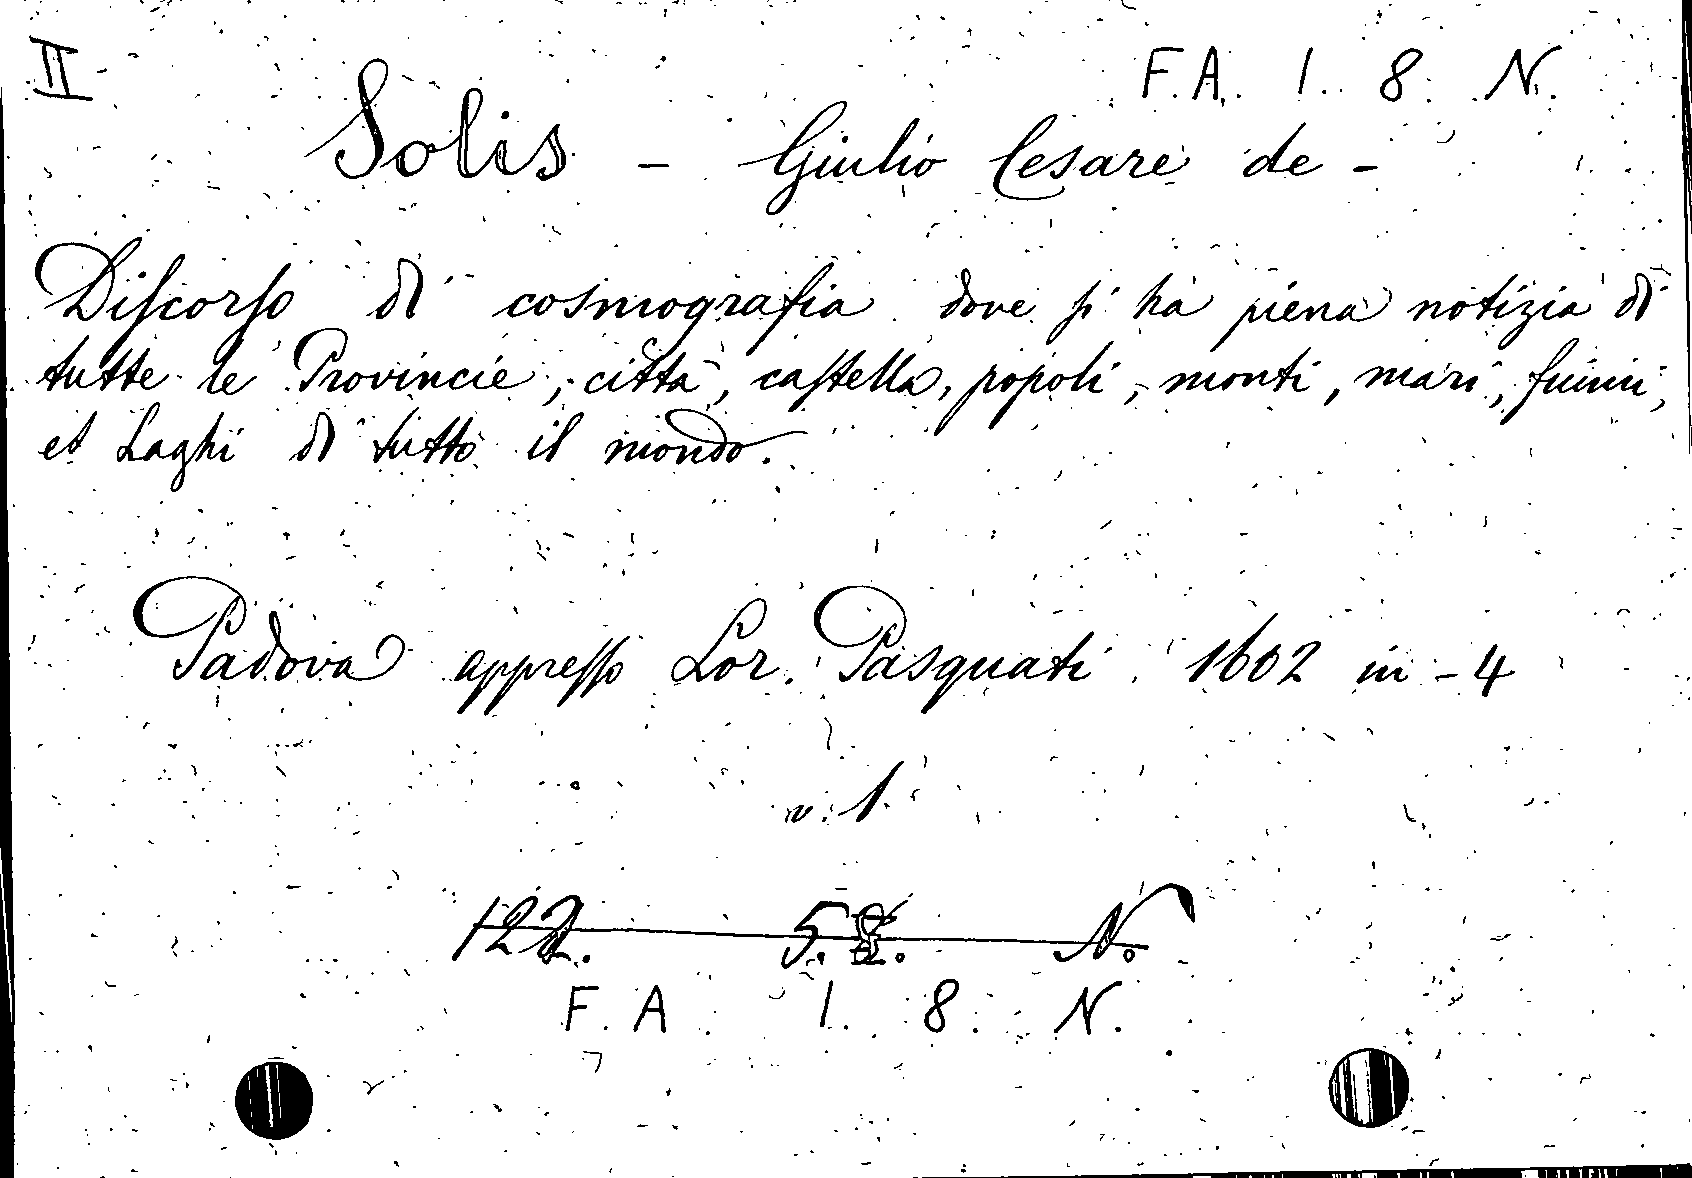 II
F. A. 1. 8. N.
Solis - Giulio Cesare de -
Diſcorſo di cosmografia dove ſi ha piena notizia di
tutte le Provincie, città, caſtella, popoli, monti, mari, fiumi,
et Laghi di tutto il mondo.
Padova appreſſo Lor. Pasquati 1602 in-4
v. 1.
5. N.
F. A. 1. 8. N.